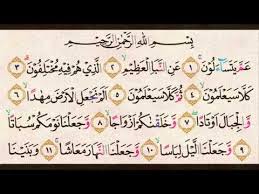 بِسْمِ اللَّهِ الرَّحْمَٰنِ الرَّحِيمِ
عَمَّ يَتَسَآءَلُونَ ١ عَنِ النَّبَإِ الْعَظِيمِ ٢ الَّذِي هُمْ فِيهِ مُخْتَلِفُونَ ٣
كَلَّا سَيَعْلَمُونَ ٤ ثُمَّ كَلَّا سَيَعْلَمُونَ ٥ أَلَمْ نَجْعَلِ الْأَرْضَ مِهَٰدًا ٦
وَالْجِبَالَ أَوْتَادًا ٧ وَخَلَقْنَٰكُمْ أَزْوَٰجًا ٨ وَجَعَلْنَا نَوْمَكُمْ سُبَاتًا
٩ وَجَعَلْنَا الَّيْلَ لِبَاسًا ١٠ وَجَعَلْنَا النَّهَارَ مَعَاشًا ١١ وَبَنَيْنَا